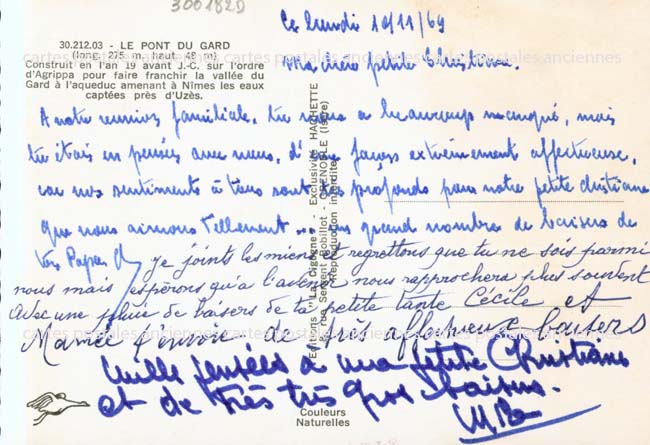 300182D
Ce Lundi 10/11/69
30.212.03 - LE PONT DU GARD
(long. 275 m, haut. 48 m)
Construit en l'an 19 avant J.-C. sur l'ordre
d'Agrippa pour faire franchir la vallée du
Gard à l'aqueduc amenant à Nîmes les eaux
captées près d'Uzès.
Ma chère petite Christiane.
cartes postales anciennes cartes postales anciennes cartes postales anciennes
A notre réunion familiale, tu nous a beaucoup manqué, mais
tu étais en pensées avec nous, d'une façon extrêmement affectueuse,
car nos sentiments à tous sont très profonds pour notre petite Christiane
que nous aimons tellement ... un grand nombre de baisers de
ton Papa
je joints les miens et regrettons que tu ne sois parmi
nous mais espérons qu'à l'avenir nous rapprochera plus souvent
avec une pluie de baisers de ta petite tante Cécile et
Maurice t'envoie de très affectueux baisers
cartes postales anciennes cartes postales anciennes cartes postales anciennes
mille pensées à ma petite Christiane
et de très très gros baisers.
Editions "La Cigogne" - Exclusivité HACHETTE
GRENOBLE (Isère)
Reproduction interdite
Couleurs
Naturelles